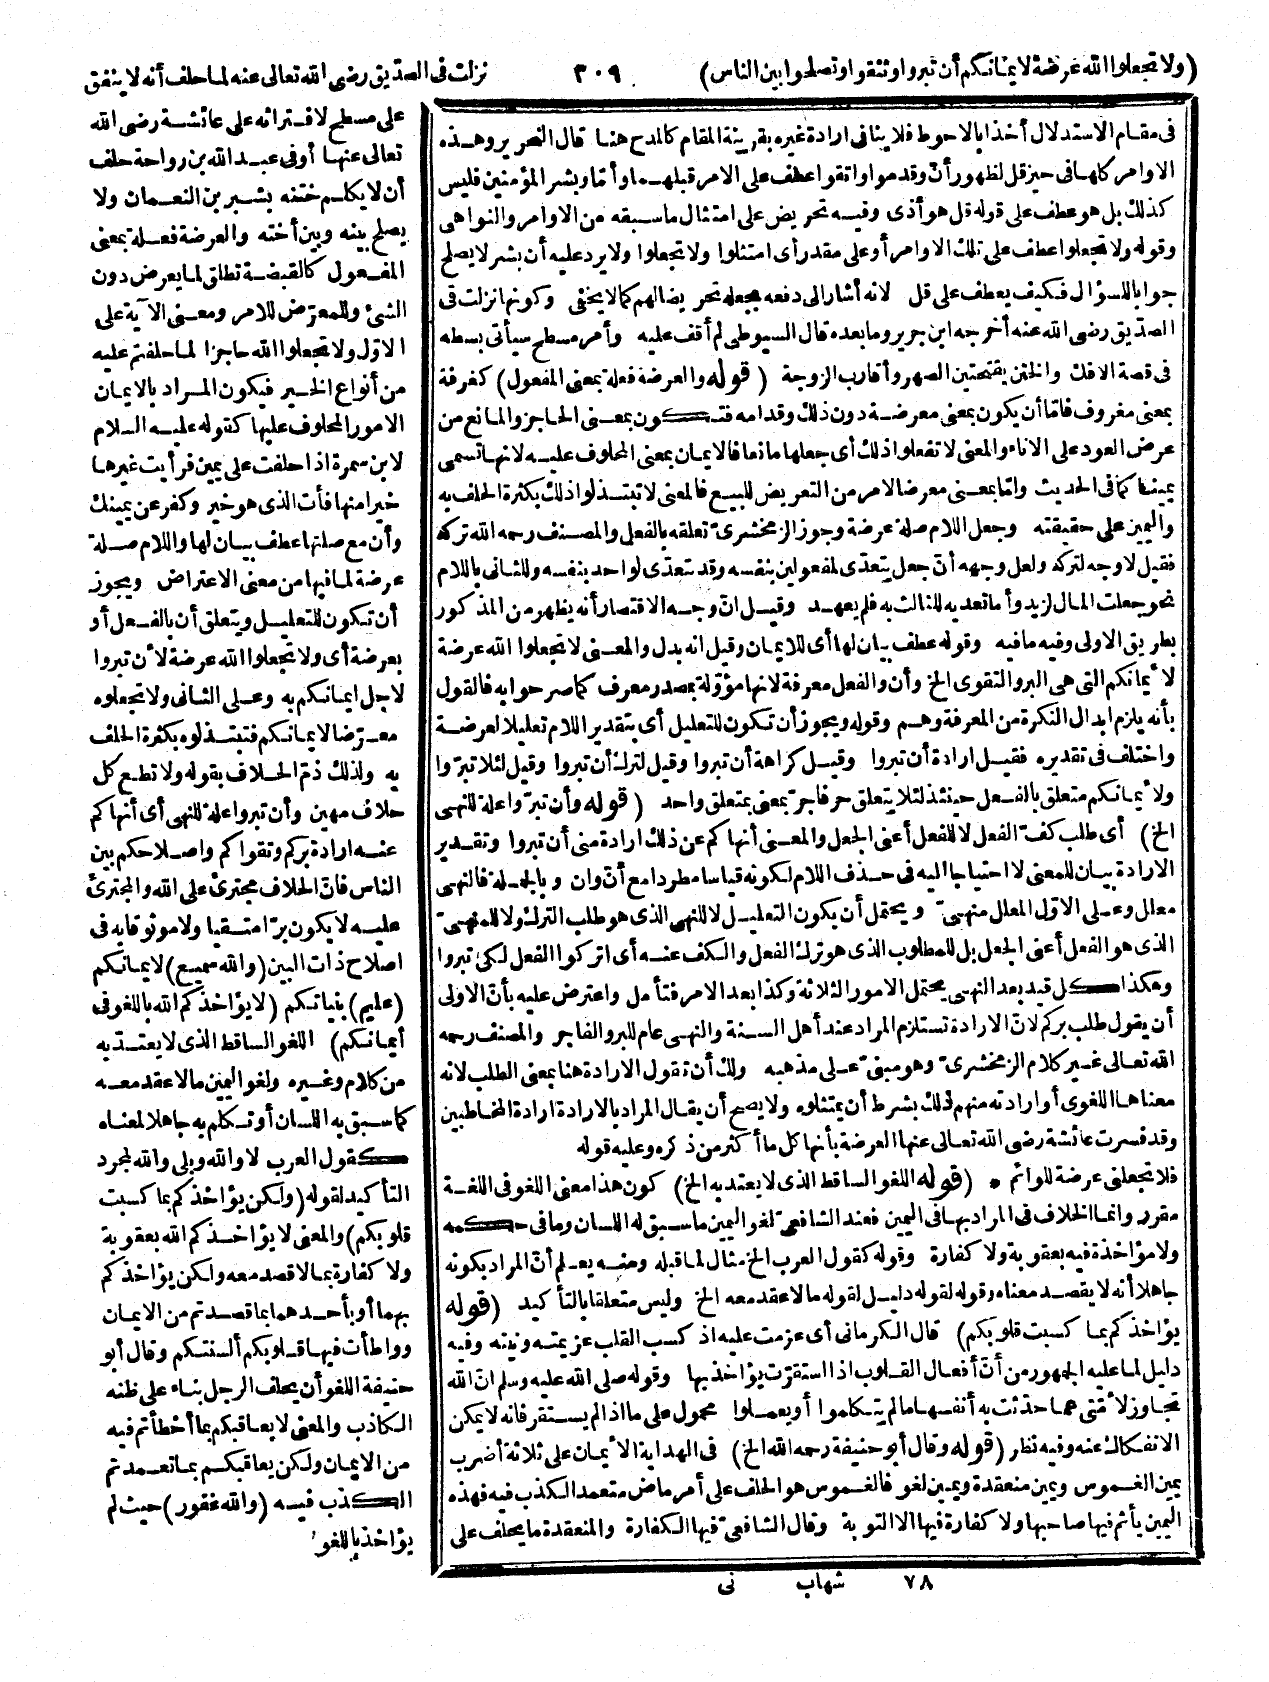 (ولا تجعلوا الله عرضة لايمانكم أن تبروا وتتقوا وتصلحوا بين الناس) ٣٠٩ نزلت فى الصدّيق رضى الله تعالى عنه لما حلف أنه لا ينفق
على مسطح لافترائه على عائشة رضى الله
تعالى عنها أوفى عبد الله بن رواحة حلف
أن لا يكلم ختنه بشير بن النعمان ولا
يصلح بينه وبين أخته والعرضة فعلة بمعنى
المفعول كالقبضة تطلق لما يعرض دون
الشئ وللمعرّض للامر ومعنى الآية على
الاوّل ولا تجعلوا الله حاجزا لما حلفتم عليه
من أنواع الخير فيكون المراد بالايمان
الامور المحلوف عليها كقوله عليه السلام
لابن سمرة اذا حلفت على يمين فرأيت غيرها
خيرا منها فأت الذى هو خير وكفر عن يمينك
وأن مع صلتها عطف بيان لها واللام صلة
عرضة لما فيها من معنى الاعتراض ويجوز
أن تكون للتعليل ويتعلق أن بالفعل أو
بعرضة أى ولا تجعلوا الله عرضة لأن تبروا
لاجل ايمانكم به وعلى الثانى ولا تجعلوه
معرّضا لايمانكم فتبتذلوه بكثرة الحلف
به ولذلك ذمّ الحلاف بقوله ولا تطع كل
حلاف مهين وأن تبروا علة للنهى أى أنهاكم
عنه ارادة بركم وتقواكم واصلاحكم بين
الناس فانّ الحلاف مجترئ على الله والمجترئ
عليه لا يكون برّا متقيا ولا موثوقا به فى
اصلاح ذات البين (والله سميع) لايمانكم
(عليم) بنياتكم (لا يؤاخذكم الله باللغو فى
أيمانكم) اللغو الساقط الذى لا يعتدّ به
من كلام وغيره ولغو اليمين ما لا عقد معه
كما سبق به اللسان أو تكلم به جاهلا لمعناه
كقول العرب لا والله وبلى والله لمجرد
التأكيد لقوله (ولكن يؤاخذكم بما كسبت
قلوبكم) والمعنى لا يؤاخذكم الله بعقوبة
ولا كفارة بما لا قصد معه ولكن يؤاخذكم
بهما أو بأحدهما بما قصدتم من الايمان
وواطأت فيها قلوبكم ألسنتكم وقال أبو
حنيفة اللغو أن يحلف الرجل بناء على ظنه
الكاذب والمعنى لا يعاقبكم بما أخطأتم فيه
من الايمان ولكن يعاقبكم بما تعمدتم
الكذب فيه (والله غفور) حيث لم
يؤاخذ باللغو
فى مقام الاستدلال أخذا بالاحوط فلا ينافى ارادة غيره بقرينة المقام كالمدح هنا قال النحرير وهذه
الاوامر كلها فى حيز قل لظهور أنّ وقدموا واتقوا عطف على الامر قبلهما وأمّا وبشر المؤمنين فليس
كذلك بل هو عطف على قوله قل هو أذى وفيه تحريض على امتثال ما سبقه من الاوامر والنواهى
وقوله ولا تجعلوا عطف على تلك الاوامر أو على مقدر أى امتثلوا ولا تجعلوا ولا يرد عليه أن بشر لا يصلح
جوابا للسؤال فكيف يعطف على قل لانه أشار الى دفعه بجعله تحريضا لهم كما لا يخفى وكونها نزلت فى
الصدّيق رضى الله عنه أخرجه ابن جرير وما بعده قال السيوطى لم أقف عليه وأمر مسطح سيأتى بسطه
فى قصة الافك والختن بفتحتين الصهر وأقارب الزوجة (قوله والعرضة فعلة بمعنى المفعول) كغرفة
بمعنى مغروف فامّا أن يكون بمعنى معرضة دون ذلك وقدامه فتكون بمعنى الحاجز والمانع من
عرض العود على الاناء والمعنى لا تفعلوا ذلك أى جعلها مانعا فالايمان بمعنى المحلوف عليه لانها تسمى
يمينا كما فى الحديث وامّا بمعنى معرضا لامر من التعريض للبيع فالمعنى لا تبتذلوا ذلك بكثرة الحلف به
واليمين على حقيقته وجعل اللام صلة عرضة وجوز الزمخشرىّ تعلقه بالفعل والمصنف رحمه الله تركه
فقيل لا وجه لتركه ولعل وجهه أنّ جعل يتعدّى لمفعولين بنفسه وقد تتعدّى لواحد بنفسه وللثانى باللام
نحو جعلت المال لزيد وأما تعديه للثالث به فلم يعهد وقيل انّ وجه الاقتصار أنه يظهر من المذكور
بطريق الاولى وفيه ما فيه وقوله عطف بيان لها أى للايمان وقيل انه بدل والمعنى لا تجعلوا الله عرضة
لأيمانكم التى هى البر والتقوى الخ وأن والفعل معرفة لانها مؤوّلة بمصدر معرف كما صرحوا به فالقول
بأنه يلزم ابدال النكرة من المعرفة وهم وقوله ويجوز أن تكون للتعليل أى بتقدير اللام تعليلا لعرضة
واختلف فى تقديره فقيل ارادة أن تبروا وقيل كراهة أن تبروا وقيل لترك أن تبروا وقيل لئلا تبرّوا
ولأيمانكم متعلق بالفعل حينئذ لئلا يتعلق حرفا جرّ بمعنى بمتعلق واحد (قوله وأن تبرّوا علة للنهى
الخ) أى طلب كفّ الفعل لا للفعل أعنى الجعل والمعنى أنهاكم عن ذلك ارادة منى أن تبروا وتقدير
الارادة بيان للمعنى لا احتياجا اليه فى حذف اللام لكونه قياسا مطردا مع أنّ وان وبالجملة فالنهى
معلل وعلى الاوّل المعلل منهىّ ويحتمل أن يكون التعليل لا للنهى الذى هو طلب الترك ولا للمنهىّ
الذى هو الفعل أعنى الجعل بل للمطلوب الذى هو ترك الفعل والكف عنه أى اتركوا الفعل لكى تبروا
وهكذا كل قيد بعد النهى يحتمل الامور الثلاثة وكذا بعد الامر فتأمل واعترض عليه بأنّ الاولى
أن يقول طلب بركم لانّ الارادة تستلزم المراد عند أهل السنة والنهى عام للبر والفاجر والمصنف رحمه
الله تعالى غير كلام الزمخشرىّ وهو مبنىّ على مذهبه ولك أن تقول الارادة هنا بمعنى الطلب لانه
معناها اللغوى أو ارادته منهم لذلك بشرط أن يمتثلوه ولا يصح أن يقال المراد بالارادة ارادة المخاطبين
وقد فسرت عائشة رضى الله تعالى عنها العرضة بأنها كل ما أكثر من ذكره وعليه قوله
فلا تجعلنى عرضة للوائم • (قوله اللغو الساقط الذى لا يعتد به الخ) كون هذا معنى اللغو فى اللغة
مقرر وانما الخلاف فى المراد بها فى اليمين فعند الشافعىّ لغو اليمين ما سبق له اللسان وما فى حكمه
ولا مؤاخذة فيه بعقوبة ولا كفارة وقوله كقول العرب الخ مثال لما قبله ومنه يعلم أنّ المراد بكونه
جاهلا أنه لا يقصد معناه وقوله لقوله دليل لقوله ما لا عقد معه الخ وليس متعلقا بالتأكيد (قوله
يؤاخذكم بما كسبت قلوبكم) قال الكرمانى أى عزمت عليه اذ كسب القلب عزيمته ونيته وفيه
دليل لما عليه الجمهور من أنّ أفعال القلوب اذا استقرّت يؤاخذ بها وقوله صلى الله عليه وسلم انّ الله
تجاوز لأمّتى عما حدّثت به أنفسها ما لم يتكلموا أو يعملوا محمول على ما اذا لم يستقر فانه لا يمكن
الانفكاك عنه وفيه نظر (قوله وقال أبو حنيفة رحمه الله الخ) فى الهداية الأيمان على ثلاثة أضرب
يمين الغموس ويمين منعقدة ويمين لغو فالغموس هو الحلف على أمر ماض متعمد الكذب فيه فهذه
اليمين يأثم فيها صاحبها ولا كفارة فيها الا التوبة وقال الشافعىّ فيها الكفارة والمنعقدة ما يحلف على
٧٨ شهاب نى